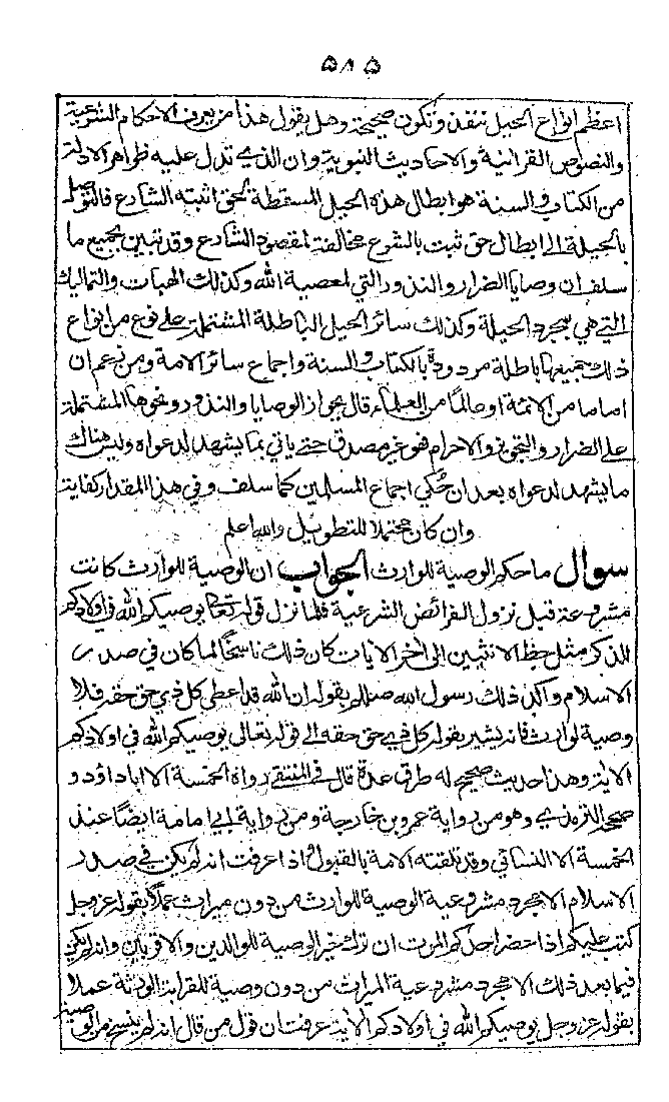 ۵۸۵
اعظم انواع الحيل تنفذ وتكون صحيحة وهل يقول هذا من يعرف الاحكام الشرعية
والنصوص القرانية والاحاديث النبوية وان الذي تدل عليه ظواهر الادلة
من الكتاب والسنة هو ابطال هذه الحيل المسقطة لحق اثبته الشارع فالتوصل
بالحيلة الى ابطال حق ثبت بالشرع مخالفة لمقصود الشارع وقد تبين بجميع ما
سلف ان وصايا الضرار والنذور التي لمعصية الله وكذلك الهبات والتماليك
التي هي بمجرد الحيلة وكذلك سائر الحيل الباطلة المشتملة على نوع من انواع
ذلك جميعها باطلة مردودة بالكتاب والسنة واجماع سائر الامة ومن زعم ان
اماما من الائمة او عالمًا من العلماء قال بجواز الوصايا والنذور ونحوها المشتملة
على الضرار والتجويز والاحرام فهو غير مصدق حتى ياتي بما يشهد لدعواه وليس هناك
ما يشهد لدعواه بعد ان حُكي اجماع المسلمين كما سلف وفي هذا المقدار كفاية
وان كان محتملا للتطويل والله اعلم
سوال ما حكم الوصية للوارث الجواب ان الوصية للوارث كانت
مشروعة قبل نزول الفرائض الشرعية فلما نزل قوله تعالى يوصيكم الله في اولادكم
للذكر مثل حظ الانثيين الى اخر الايات كان ذلك ناسخًا لما كان في صدر
الاسلام واكد ذلك رسول الله صللم بقوله ان الله قد اعطى كل ذي حق حقه فلا
وصية لوارث فانه يشير بقوله كل ذي حق حقه الى قوله تعالى يوصيكم الله في اولادكم
الاية وهذا حديث صحيح له طرق عدة قال في المنتقى رواه الخمسة الا ابا داؤد و
صححه الترمذي وهو من رواية عمرو بن خارجة ومن رواية ابي امامة ايضًا عند
الخمسة الا النسائي وقد تلقته الامة بالقبول واذا عرفت انه لم يكن في صدر
الاسلام الا مجرد مشروعية الوصية للوارث من دون ميراث عملًا بقوله عز وجل
كتب عليكم اذا حضر احدكم الموت ان ترك خير الوصية للوالدين والاقربين وانه لم يكن
فيما بعد ذلك الا مجرد مشروعية الميراث من دون وصية للقرابة الورثة عملا
بقوله عز وجل يوصيكم الله في اولادكم الاية عرفت ان قول من قال انه لم ينسخ من الوصية